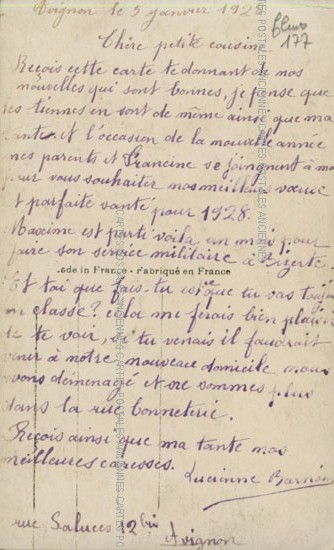 Avignon le 3 janvier 1928
fleur
177
Chère petite cousine
Reçois cette carte te donnant de nos
nouvelles qui sont bonnes, je pense que
les tiennes en sont de même ainsi que ma
tante. A l'occasion de la nouvelle année
mes parents et Francine se joignent à moi
pour vous souhaiter nos meilleurs voeux
et parfaite santé pour 1928.
Maxime est parti voila un mois pour
faire son service militaire à Bizerte.
ade in France - Fabriqué en France
Et toi que fais-tu est ce que tu vas toujours
en classe? cela me ferais bien plaisir
de te voir, si tu venais il faudrait
venir à notre nouveau domicile nous
avons déménagé et ne sommes plus
dans la rue bonneterie.
Reçois ainsi que ma tante nos
meilleures caresses.
Lucienne
rue Saluces 12 bis Avignon
CARTES POSTALES ANCIENNES